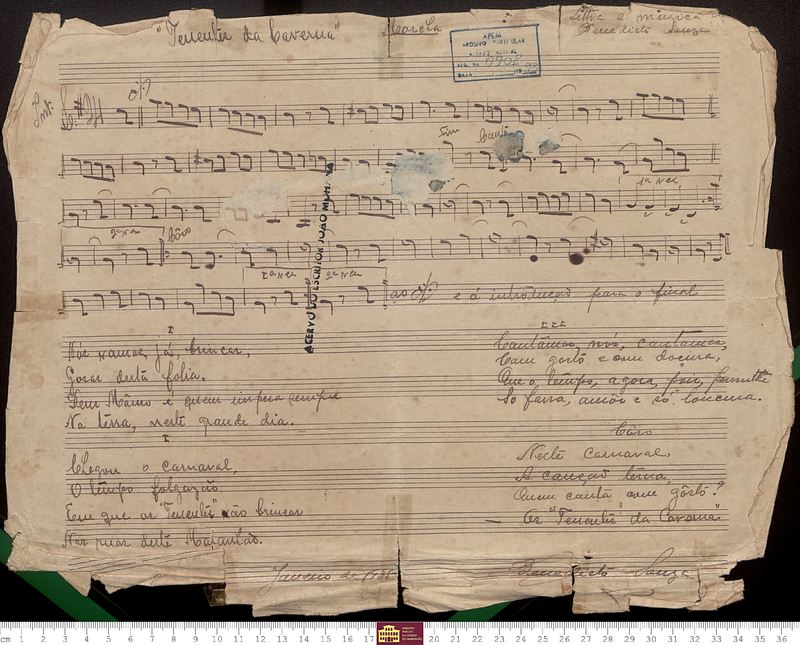 "Tenentes da Caverna" Marcha
Letra e musica
Benedicto Souza
APEM
ARQUIVO PARTICULAR
Int.
Fim
Canto
1ª vez
2ª vez
Côro
1ª vez
2ª vez
ao e á introducção para o final
ACERVO DO ESCRITOR JOÃO MOH
I
Nós vamos, já, brincar,
Gosar desta folia.
Deus Mômo é quem impera sempre
Na terra, neste grande dia.
I
Chegou o carnaval,
O tempo folgazão
Em que os "Tenentes" vão brincar
Nas ruas deste Maranhão.
III
Cantâmos, nós, cantâmos,
Com gosto e com doçura,
Que o tempo, agora, permitte
So farra, amôr e só loucura.
Côro
Neste Carnaval
A canção terna,
Quem canta com gôsto?
— Os "Tenentes da Caverna"
Janeiro de
Benedicto Souza
cm 1 2 3 4 5 6 7 8 9 10 11 12 13 14 15 16 17 20 21 22 23 24 25 26 27 28 29 30 31 32 33 34 35 36